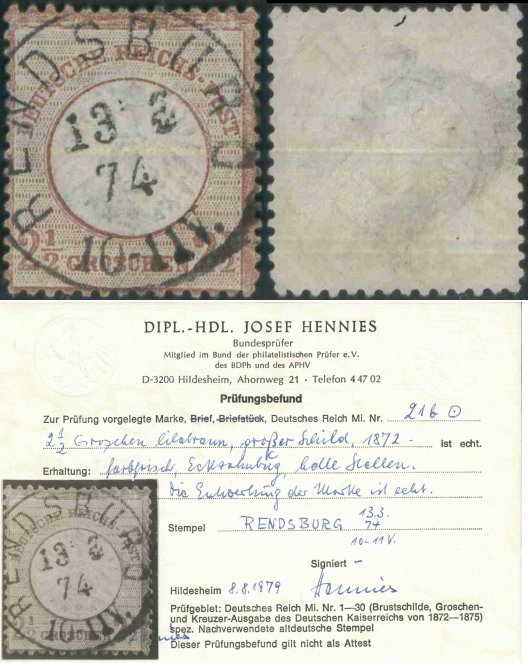 RENDSBURG
DEUTSCHE REICHS-POST
13 3
74
10-11V.
2½ GROSCHEN 2½
DIPL.-HDL. JOSEF HENNIES
Bundesprüfer
Mitglied im Bund der philatelistischen Prüfer e.V.
des BDPh und des APHV
D-3200 Hildesheim, Ahornweg 21 - Telefon 4 47 02
Prüfungsbefund
Zur Prüfung vorgelegte Marke, Brief, Briefstück, Deutsches Reich Mi. Nr. 21b ⊙
2½ Groschen lilabraun, großer Schild, 1872 - ist echt.
Erhaltung: farbfrisch, Eckzahnbug, helle Stellen.
Die Entwertung der Marke ist echt.
Stempel RENDSBURG 13.3. 74
10-11V.
Signiert -
Hildesheim 8.8.1979 Hennies
Prüfgebiet: Deutsches Reich Mi. Nr. 1—30 (Brustschilde, Groschen-
und Kreuzer-Ausgabe des Deutschen Kaiserreichs von 1872—1875)
spez. Nachverwendete altdeutsche Stempel
Dieser Prüfungsbefund gilt nicht als Attest
RENDSBURG
DEUTSCHE REICHS-POST
13 3
74
10-11V.
GROSCHEN